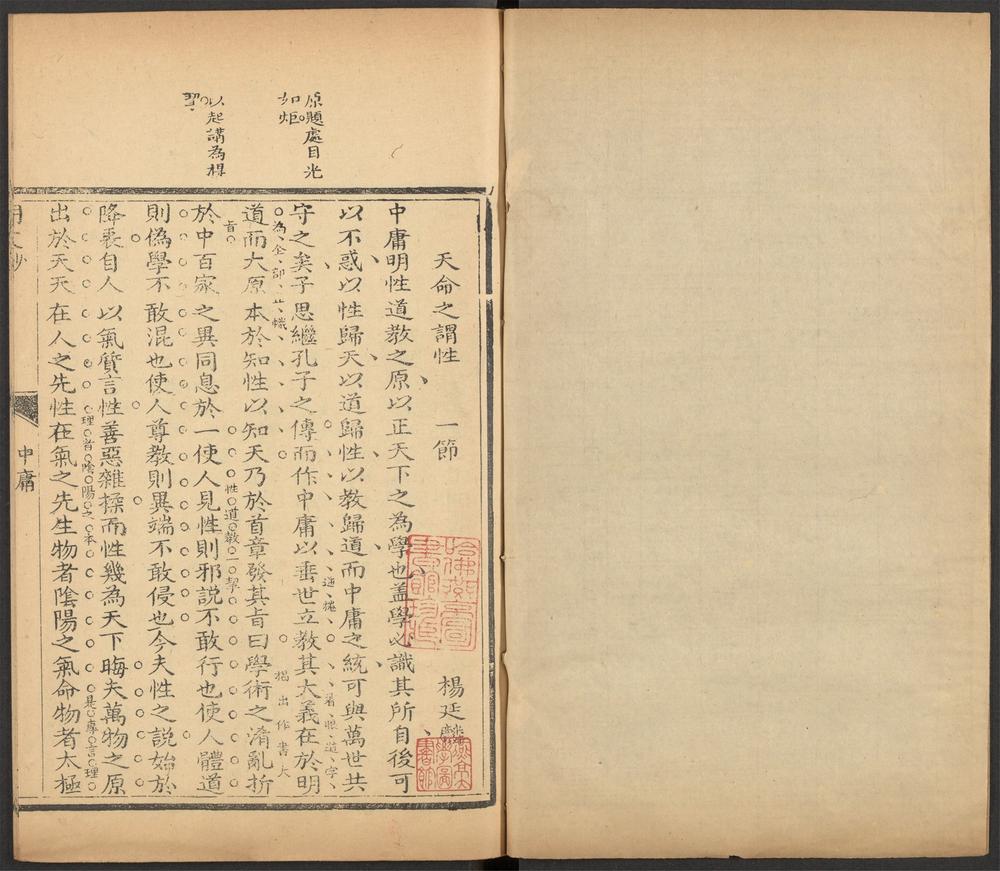 原題處目光
如炬
以起講為楔
中庸
天命之謂性　一節　楊廷
中庸明性道教之原以正天下之為學也蓋學必識其所自後可
以不惑以性歸天以道歸性以教歸道而中庸之統可與萬世共
守之矣子思繼孔子之傳而作中庸以垂世立教其大義在於明
道而大原本於知性以知天乃於首章發其旨曰學術之淆亂折
於中百家之異同息於一使人見性則邪說不敢行也使人體道
則偽學不敢混也使人尊教則異端不敢侵也今夫性之說始於
降衷自人以氣質言性善惡雜揉而性幾為天下晦夫萬物之原
出於天天在人之先性在氣之先生物者陰陽之氣命物者太極
着眼道字
揭出作書大
旨
性道教一挈
理者陰陽之本
是專言理